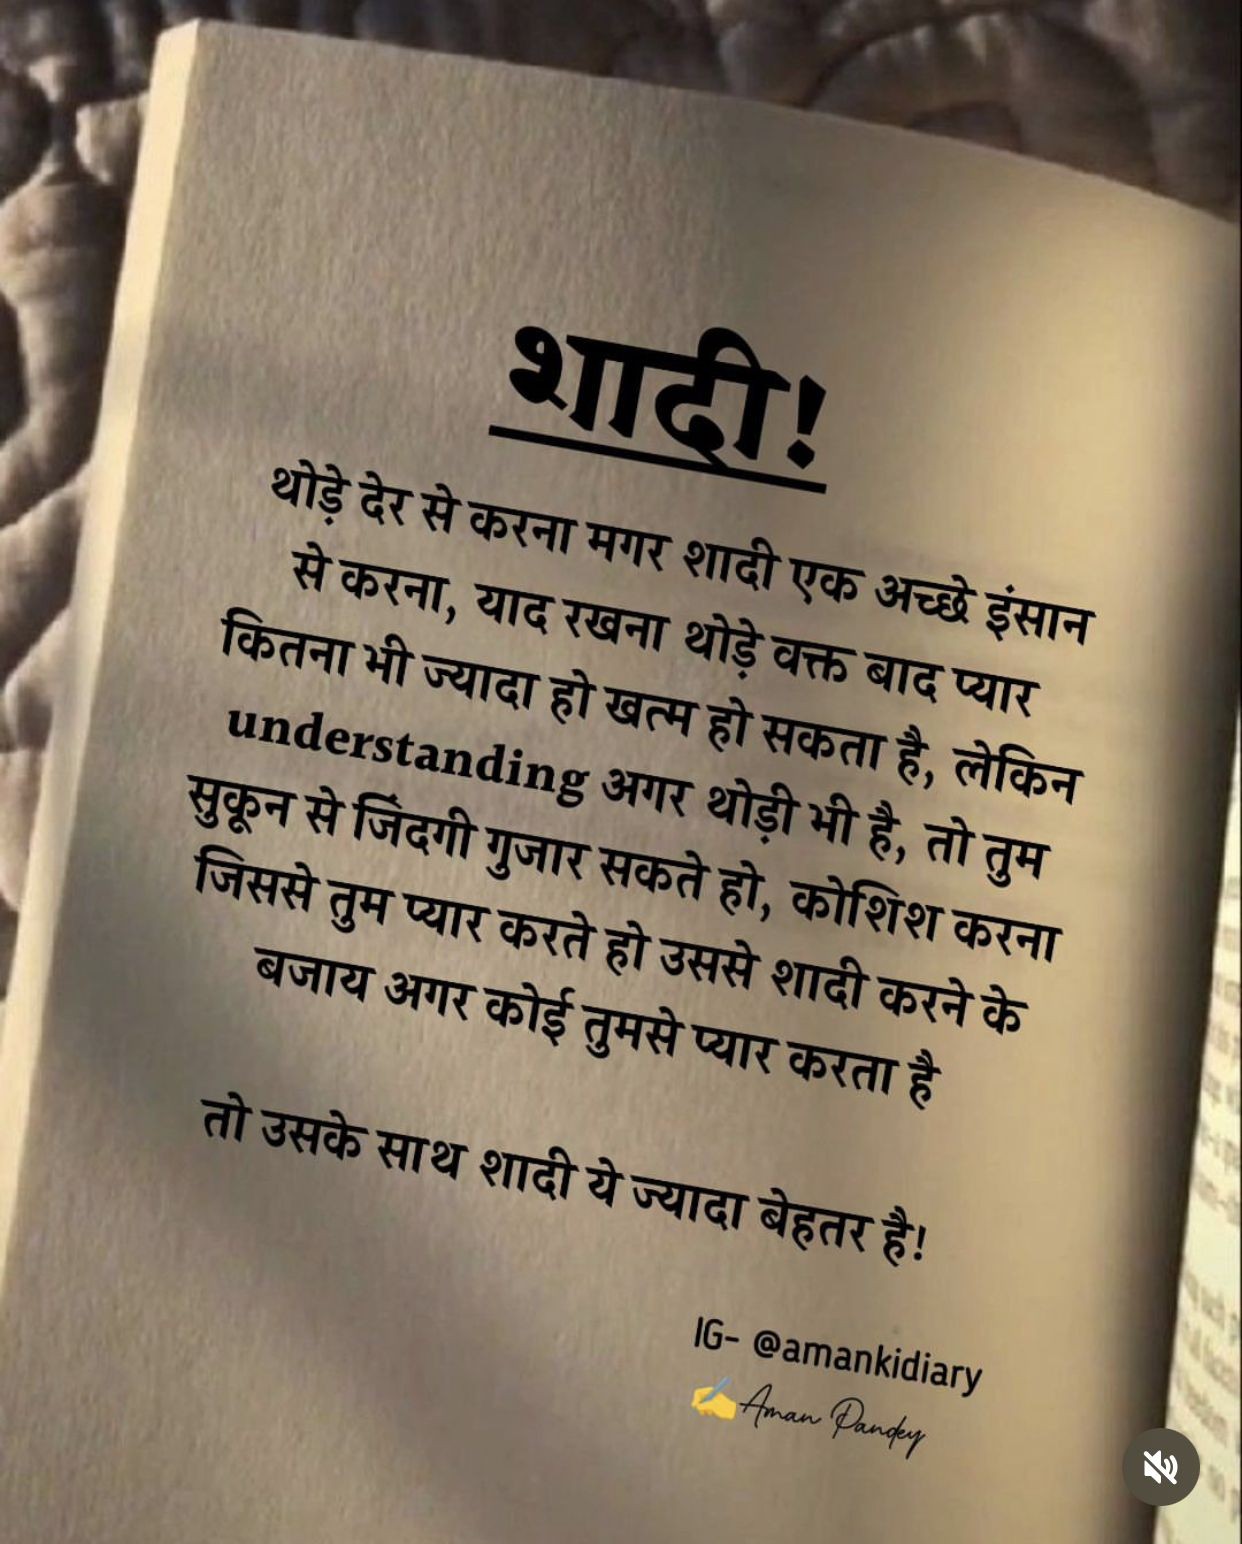 शादी!
थोड़े देर से करना मगर शादी एक अच्छे इंसान
से करना, याद रखना थोड़े वक्त बाद प्यार
कितना भी ज्यादा हो खत्म हो सकता है, लेकिन
understanding अगर थोड़ी भी है, तो तुम
सुकून से जिंदगी गुजार सकते हो, कोशिश करना
जिससे तुम प्यार करते हो उससे शादी करने के
बजाय अगर कोई तुमसे प्यार करता है
तो उसके साथ शादी ये ज्यादा बेहतर है!
IG- @amankidiary
✍️Aman Pandey